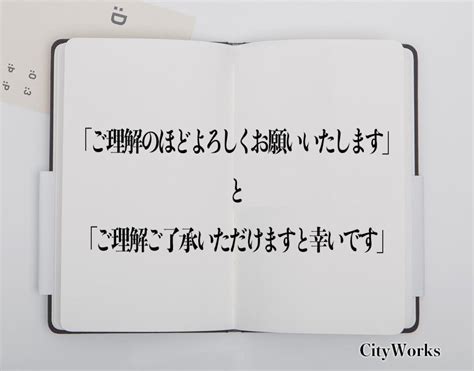 :D
:O
:3
:P
:P
「ご理解のほどよろしくお願いいたします」
と
「ご理解ご了承いただけますと幸いです」
CityWorks